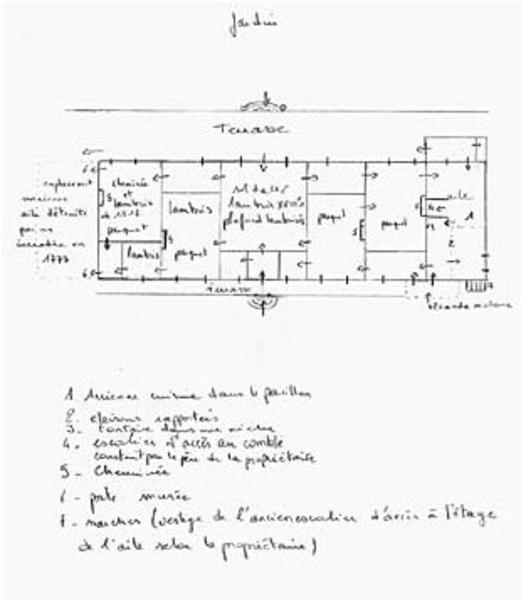 Jardin
Terrasse
emplacement
ancienne
aile détruite
par un
incendie en
1777
6
cheminée
et
lambris
parquet
5
lambris
6
lambris
parquet
5
lambris XVIIIe
plafond lambris
parquet
5
parquet
4
aile
1
3
2
7
Terrasse
1 Ancienne cuisine dans le pavillon
2. cloisons rapportées
3. fontaine dans une niche
4. escalier d'accès au comble
construit par le père de la propriétaire
5 - Cheminée
6 - porte murée
7 - marches (vestige de l'ancien escalier d'accès à l'étage
de l'aile selon le propriétaire)